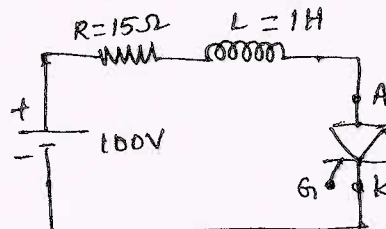 R=15Ω
L=1H
A
+
-
100V
G
K